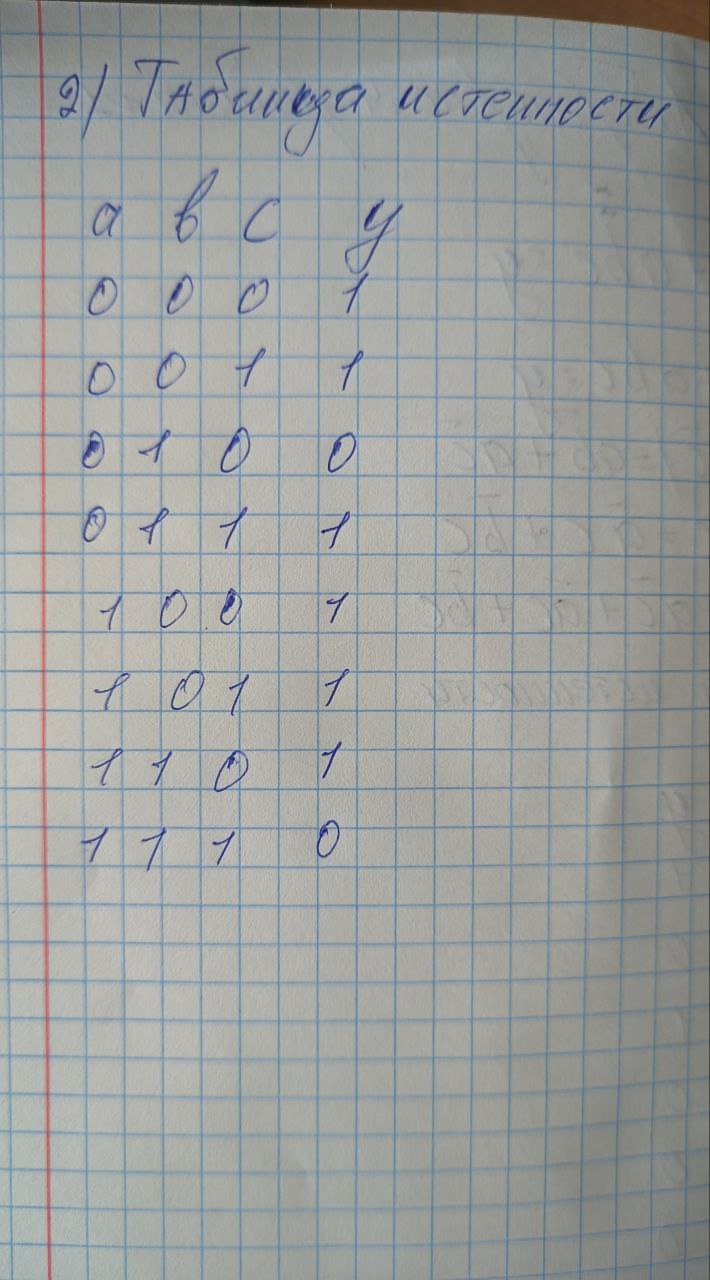 2) Таблица истенности
a в c y
0 0 0 1
0 0 1 1
0 1 0 0
0 1 1 1
1 0 0 1
1 0 1 1
1 1 0 1
1 1 1 0